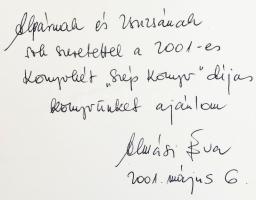 Alpárnak és Zsuzsának
sok szeretettel a 2001-es
Könyvhét „Szép Könyv" díjas
könyvünket ajánlom
Almási Éva
2001. május 6.